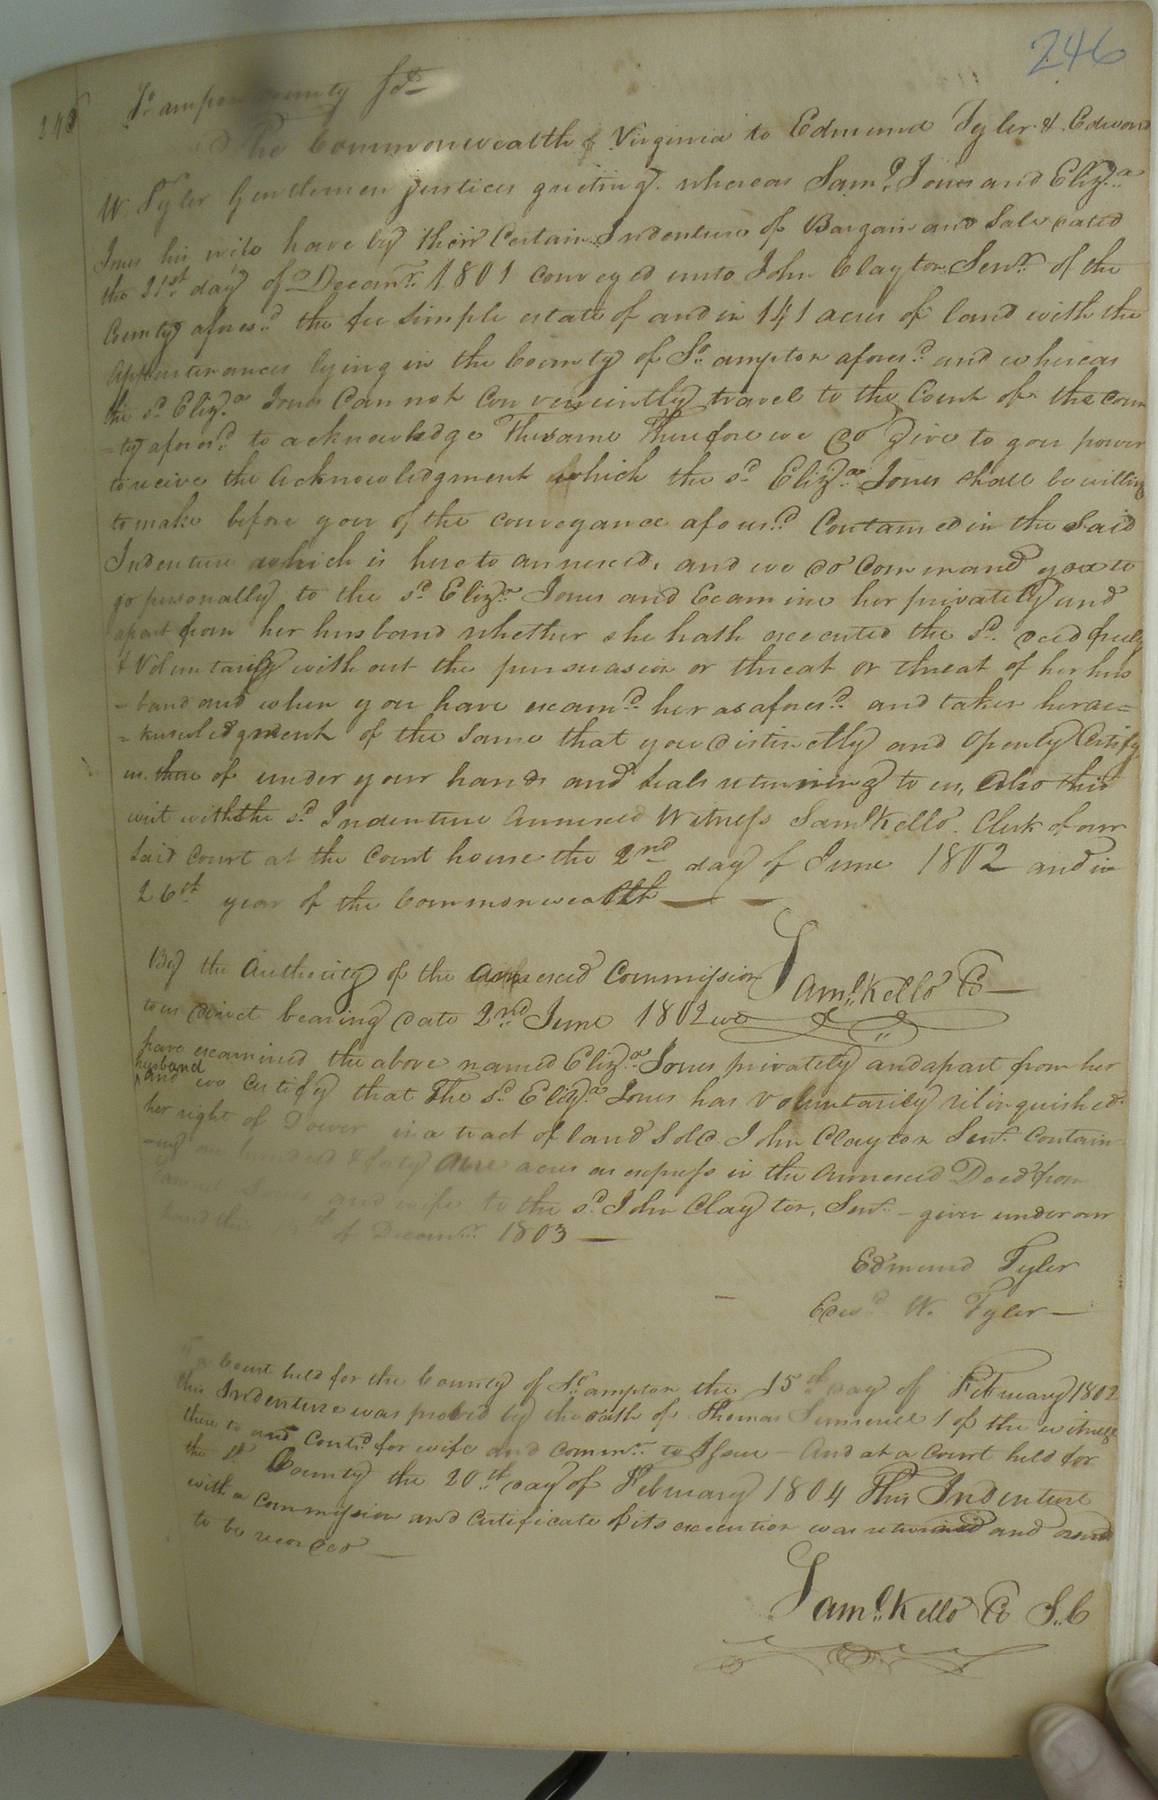 246
245
So. ampton County Sct
The Commonwealth of Virginia to Edmund Tyler & Edward
W. Tyler Gentlemen justices greeting. whereas Saml. Jones and Eliza.
Jones his wife have by their Certain Indenture of Bargain and Sale dated
the 21st day of Decemr. 1801 conveyed unto John Clayton Senr. of the
County aforesd. the fee simple estate of and in 141 acres of land with the
appurtenances lying in the County of So. ampton aforesd. and whereas
the sd. Eliza. Jones Cannot Conveniently travel to the Court of the Coun
-ty aforesd. to acknowledge the same Therefore we do Give to you power
to receive the Acknowledgment which the sd. Eliza. Jones shall be willing
to make before you of the conveyance aforesd. Contained in the Said
Indenture which is hereto annexed, and we do Command you to
go personally to the sd. Eliza. Jones and Examine her privately and
apart from her husband whether she hath executed the sd. deed freely
& Voluntarily with out the persuasion or threat or threat of her hus
-band and when you have examd. her as aforesd. and taken her ac=
=knowledgment of the same that you distinctly and Openly Certify
us there of under your hands and seals returning to us, Also this
writ with the sd. Indenture Annexed Witness Saml. Kello. Clerk of our
said Court at the Court house the 2nd day of June 1802 and in
26th year of the Commonwealth
Saml. Kello Cl
By the Authority of the annexed Commission
to us direct bearing date 2nd June 1802 we
have examined the above named Eliza. Jones privately and apart from her
husband
and we certify that The sd. Eliza. Jones has voluntarily relinquished
her right of Dower in a tract of land Sold John Clayton Senr. Contain
-ing one hundred & forty one acres as express in the Annexed Deed from
Jones and wife to the sd. John Clayton, Senr. - given under our
hand this of Decemr. 1803
Edmund Tyler
Edwd. W. Tyler
a Court held for the County of So. ampton the 15th day of February 1802
this Indenture was proved by the oath of Thomas 1 of the witnesses
there to and Contd. for wife and commn. to Issue - And at a Court held for
the sd. County the 20th day of February 1804 This Indenture
with a Commission and Certificate of its execution was returned and
to be recorded
Saml. Kello Cl S. C